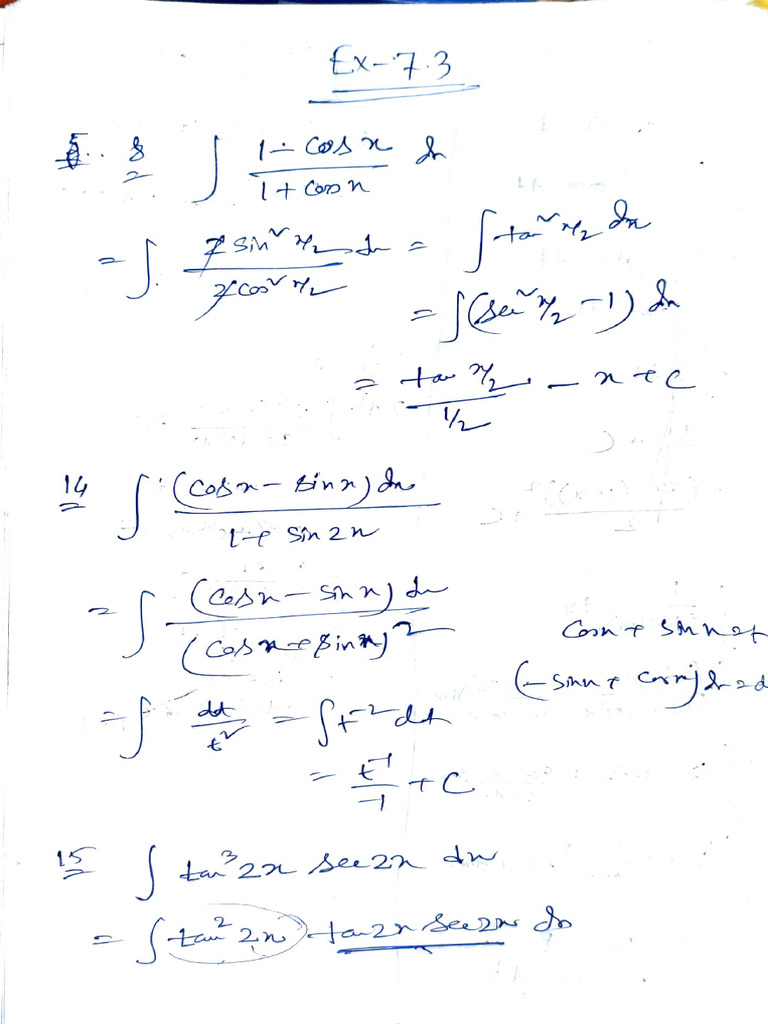 Ex-7.3
8 ∫ (1 - cos x)/(1 + cos x) dx
= ∫ (2 sin² x/2)/(2 cos² x/2) dx = ∫ tan² x/2 dx
= ∫ (sec² x/2 - 1) dx
= (tan x/2)/(1/2) - x + C
14 ∫ (cos x - sin x) dx/(1 + sin 2x)
= ∫ (cos x - sin x) dx/(cos x + sin x)²
cos x + sin x = t
(-sin x + cos x) dx = d
= ∫ dt/t² = ∫ t⁻² dt
= t⁻¹/-1 + C
15 ∫ tan³ 2x sec 2x dx
= ∫ tan² 2x tan 2x sec 2x dx